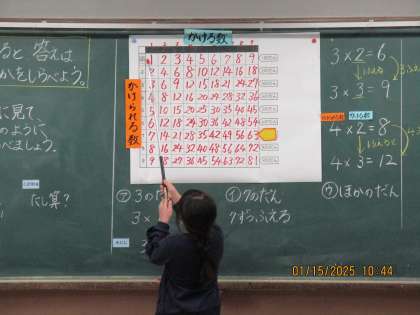 かける数
ると 答えは
かをしらべよう。
に見て、
のように、
べましょう。
たし算?
かけられる数
1 2 3 4 5 6 7 8 9
2 4 6 8 10 12 14 16 18
3 6 9 12 15 18 21 24 27
4 8 12 16 20 24 28 32 36
5 10 15 20 25 30 35 40 45
6 12 18 24 30 36 42 48 54
7 14 21 28 35 42 49 56 63
8 16 24 32 40 48 56 64 72
9 18 27 36 45 54 63 72 81
㋐ 3のだん
3×
㋑ 7のだん
7ずつふえる
3×2=6
3×3=9
4×2=8
4×3=12
㋒ ほかのだん
01/15/2025 10:44